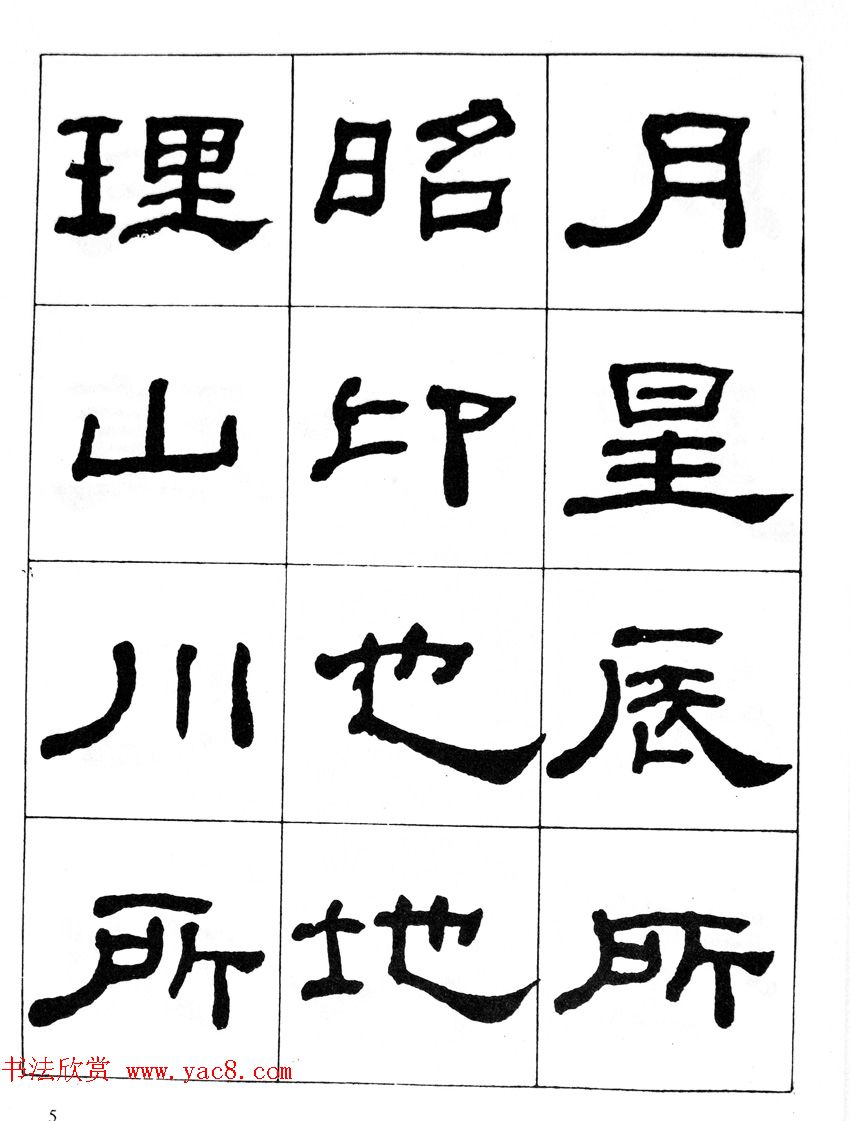 月星辰所
昭卬也地
理山川所
书法欣赏 www.yac8.com
5